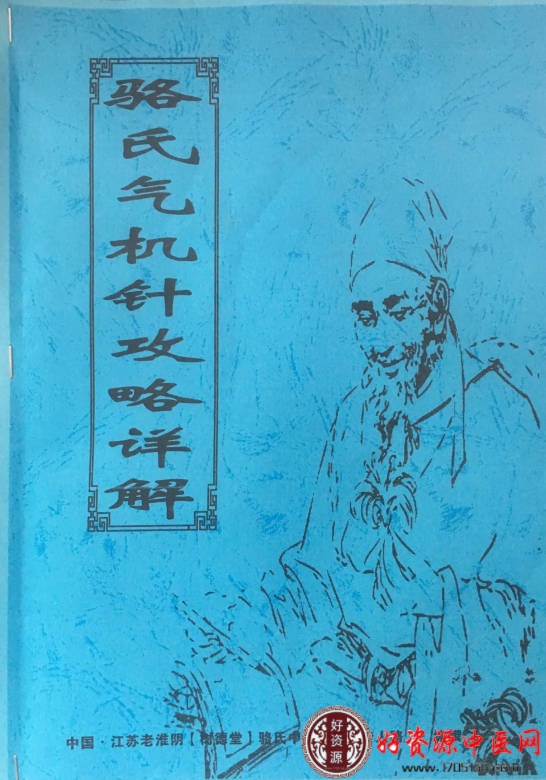 骆氏气机针攻略详解
中国·江苏老淮阴【树德堂】骆氏中
好资源
好资源中医网